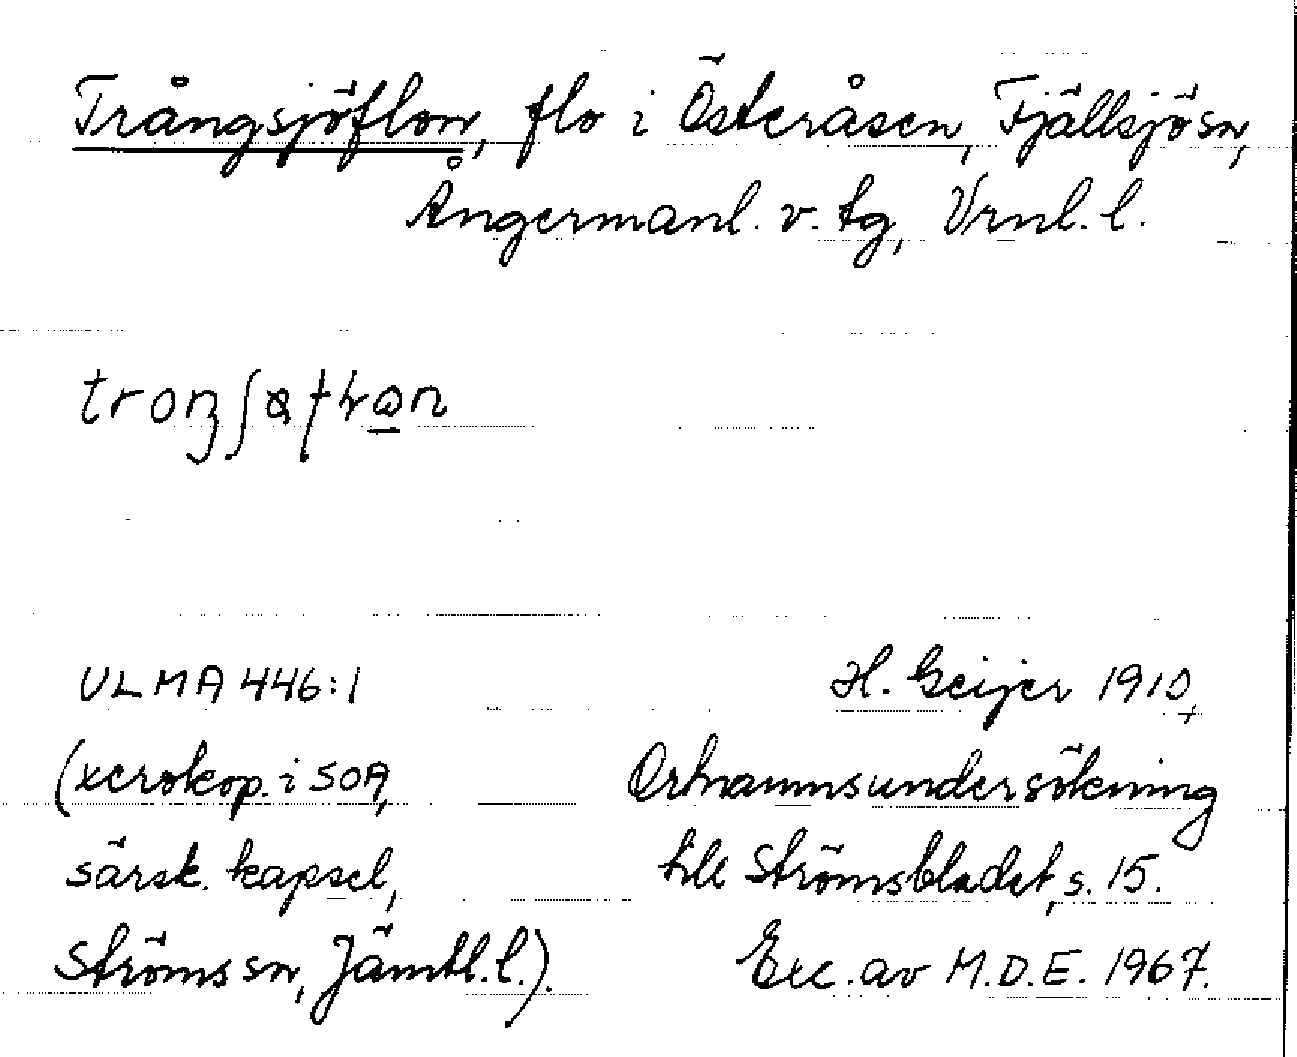 Trångsjöflon, flo i Österåsen, Fjällsjö sn,
Ångermanl. v. tg, Vrnl. l.
ULMA 446:1
(xerokop. i SOA,
särsk. kapsel,
Ströms sn, Jämtl. l.).
H. Geijer 1910,
Ortnamnsundersökning
till Strömsbladet, s. 15.
Exc. av M.D.E. 1967.